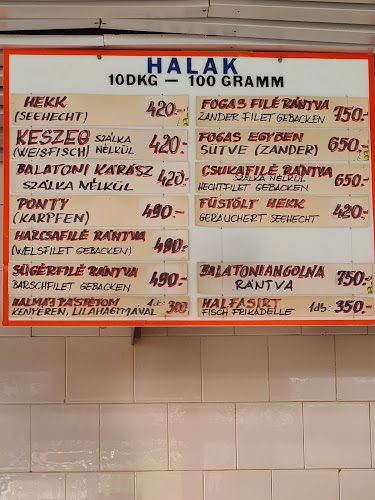 HALAK
10DKG — 100 GRAMM
HEKK 420.-
(SEEHECHT)
KESZEG SZÁLKA NÉLKÜL 420.-
(WEISFISCH)
BALATONI KÁRÁSZ 420.-
SZÁLKA NÉLKÜL
PONTY 490.-
(KARPFEN)
HARCSAFILÉ RÁNTVA 490.-
(WELSFILET GEBACKEN)
SÜGÉRFILÉ RÁNTVA 490.-
BARSCHFILET GEBACKEN
HALMÁJ PÁSTÉTOM 1db: 300
KENYÉREN, LILAHAGYMÁVAL
FOGAS FILÉ RÁNTVA 750.-
ZANDER FILET GEBACKEN
FOGAS EGYBEN 650.-
SÜTVE (ZANDER)
CSUKAFILÉ RÁNTVA 650.-
SZÁLKA NÉLKÜL
HECHTFILET GEBACKEN
FÜSTÖLT HEKK 420.-
GERÄUCHERT SEEHECHT
BALATONI ANGOLNA 750.-
RÁNTVA
HALFASÍRT 1db: 350.-
FISCH FRIKADELLE